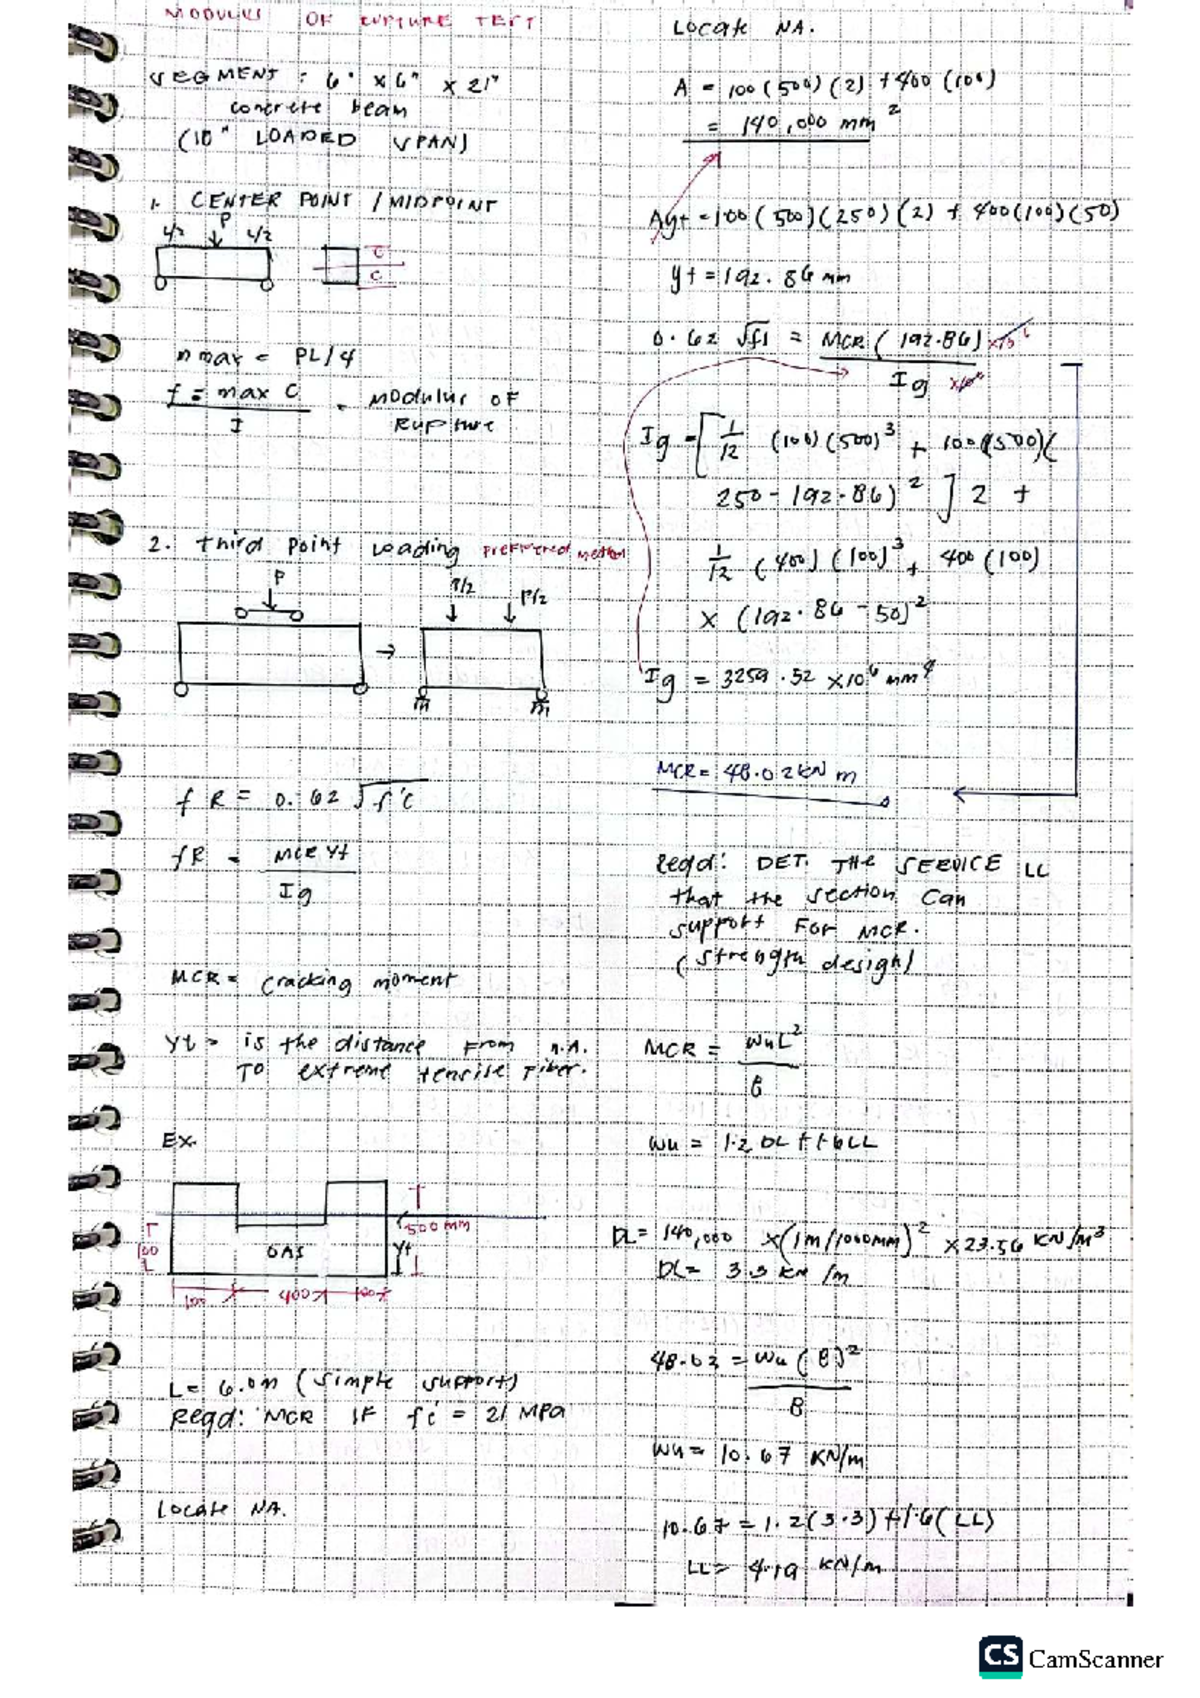 MODULUS OF RUPTURE TEST
SEGMENT : 6" x 6" x 21"
concrete beam
(10" LOADED SPAN)
1. CENTER POINT / MIDPOINT
L/2 P L/2
C
C
m max = PL/4
f = max C / I = Modulus OF Rupture
2. Third Point Loading preferred method
P
P/2 P/2
fR = 0.62 √f'c
fR = MCR Yt / Ig
MCR = Cracking moment
Yt = is the distance From n.A.
TO extreme tensile Fiber.
Ex.
500 mm
100
GAS
Yt
100 400 100
L = 6.0m (Simple support)
Reqd: MCR IF f'c = 21 MPa
Locate NA.
Locate NA.
A = 100(500)(2) + 400(100)
= 140,000 mm²
Ayt = 100(500)(250)(2) + 400(100)(50)
yt = 192.86 mm
0.62 √21 = MCR (192.86) x10⁶ / Ig
Ig = [ 1/12 (100)(500)³ + 100(500)(
250 - 192.86)² ] 2 +
1/12 (400)(100)³ + 400(100)
x (192.86 - 50)²
Ig = 3259.52 x10⁶ mm⁴
MCR = 48.02 kN m
Reqd: DET. THe SERVICE LL
that the section Can
support For MCR.
(strength design)
MCR = WuL² / 8
Wu = 1.2 DL + 1.6 LL
DL = 140,000 x (1m/1000mm)² x 23.56 KN/m³
DL = 3.3 KN/m
48.02 = Wu (6)² / 8
Wu = 10.67 KN/m
10.67 = 1.2(3.3) + 1.6(LL)
LL = 4.19 KN/m
CS CamScanner